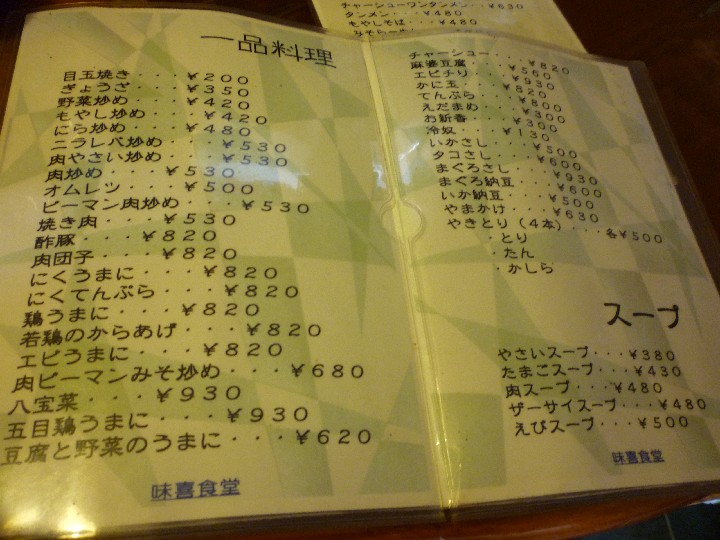 チャーシューワンタンメン・・¥630
タンメン・・・¥480
もやしそば・・・¥480
一品料理
目玉焼き・・・¥200
ぎょうざ・・・¥350
野菜炒め・・・¥420
もやし炒め・・・¥420
にら炒め・・・¥480
ニラレバ炒め・・・¥530
肉やさい炒め・・・¥530
肉炒め・・・¥530
オムレツ・・・¥500
ピーマン肉炒め・・・¥530
焼き肉・・・¥530
酢豚・・・¥820
肉団子・・・¥820
にくうまに・・・¥820
にくてんぷら・・・¥820
鶏うまに・・・¥820
若鶏のからあげ・・・¥820
エビうまに・・・¥820
肉ピーマンみそ炒め・・・¥680
八宝菜・・・¥930
五目鶏うまに・・・¥930
豆腐と野菜のうまに・・・¥620
味喜食堂
チャーシュー・・・¥820
麻婆豆腐・・・¥560
エビチリ・・・¥930
かに玉・・・¥820
てんぷら・・・¥800
えだまめ・・・¥300
お新香・・・¥300
冷奴・・・¥130
いかさし・・・¥500
タコさし・・・¥600
まぐろさし・・・¥930
まぐろ納豆・・・¥600
いか納豆・・・¥500
やまかけ・・・¥630
やきとり(4本)・・・各¥500
・とり
・たん
・かしら
スープ
やさいスープ・・・¥380
たまごスープ・・・¥430
肉スープ・・・¥480
ザーサイスープ・・・¥480
えびスープ・・・¥500
味喜食堂